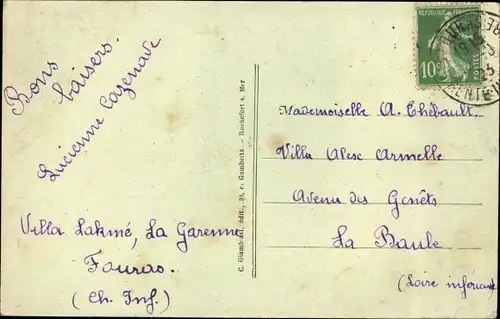 Bons
baisers.
Lucienne Cazenave
Villa Lakmé, La Garenne
Fouras.
(Ch. Inf.)
C. Giambiasi, édit., 38, r. Gambetta - Rochefort s. Mer
10c
POSTES
Mademoiselle A. Thébault.
Villa Alese Armelle
Avenue des Genêts
La Baule
(Loire inférieure)